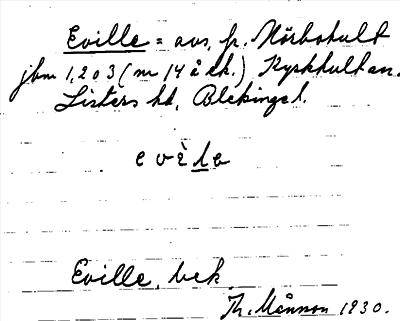 Eville = avs. fr. Mörkhult
jbm 1,203 (m 14 å ek.) Kyrkhult sn.
Listers hd, Blekinge l.
evè l e
Eville, bek.
Th. Månsson 1930.